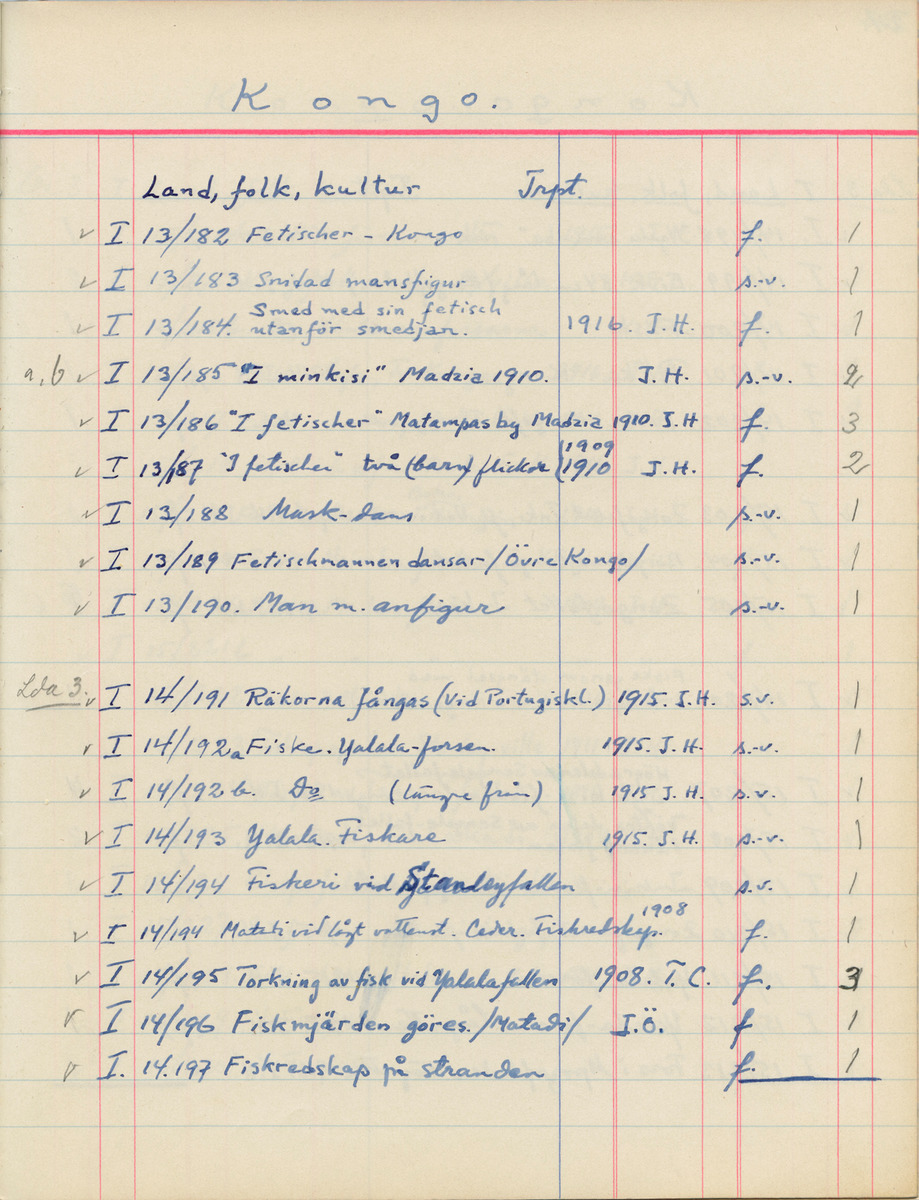 Kongo.
Land, folk, kultur Trpt.
v I 13/182 Fetischer - Kongo f. 1
v I 13/183 Snidad mansfigur s.-v. 1
Smed med sin fetisch
v I 13/184. utanför smedjan. 1916. J.H. f. 1
a, b v I 13/185 "I minkisi" Madzia 1910. J.H. s.-v. 2
v I 13/186 "I fetischer" Matampas by Madzia 1910. J.H f. 3
1909
v I 13/187 "I fetischer" två (barn) flickor (1910 J.H. f. 2
v I 13/188 Mask-dans s.-v. 1
v I 13/189 Fetischmannen dansar /Övre Kongo/ s.-v. 1
v I 13/190. Man m. anfigur s.-v. 1
Lda 3. v I 14/191 Räkorna fångas (vid Portugiskl.) 1915. J.H. s.v. 1
v I 14/192a Fiske. Yalala-forsen. 1915. J.H. s.-v. 1
v I 14/192 b. Do (längre från) 1915 J.H. s.v. 1
v I 14/193 Yalala. Fiskare 1915. J.H. s.-v. 1
v I 14/194 Fiskeri vid Stanleyfallen s.v. 1
1908
v I 14/194 Matadi vid lågt vattenst. Ceder. Fiskredskap. f. 1
v I 14/195 Torkning av fisk vid Yalalafallen 1908. T.C. f. 3
v I 14/196 Fiskmjärden göres. /Matadi/ J.Ö. f 1
v I. 14.197 Fiskredskap på stranden f. 1